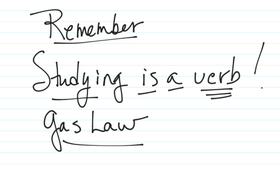 Remember
Studying is a verb!
Gas Law